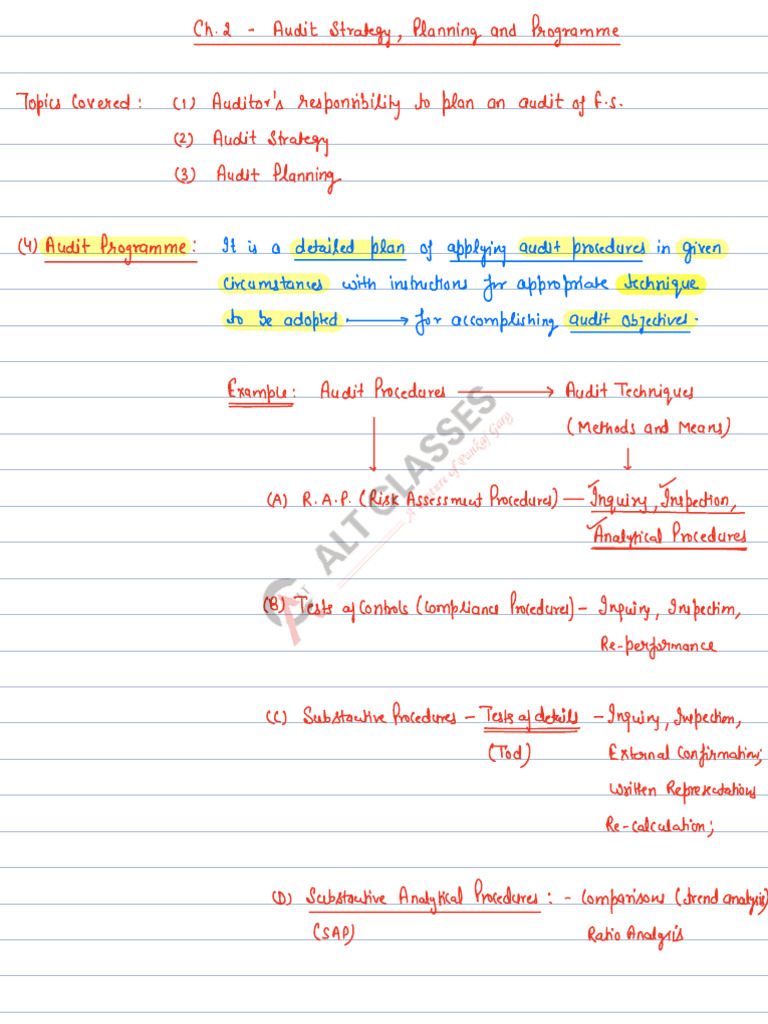 Ch.2 - Audit Strategy, Planning and Programme
Topics Covered: (1) Auditor's responsibility to plan an audit of F.S.
(2) Audit Strategy
(3) Audit Planning
(4) Audit Programme: It is a detailed plan of applying audit procedures in given
circumstances with instructions for appropriate technique
to be adopted → for accomplishing audit objectives.
Example: Audit Procedures → Audit Techniques
(Methods and Means)
(A) R.A.P. (Risk Assessment Procedures) — Inquiry, Inspection,
Analytical Procedures
(B) Tests of Controls (Compliance Procedures) - Inquiry, Inspection,
Re-performance
(C) Substantive Procedures - Tests of details - Inquiry, Inspection,
(Tod) External Confirmation;
Written Representations
Re-calculation;
(D) Substantive Analytical Procedures: - Comparisons (trend analysis)
(SAP) Ratio Analysis
ALT CLASSES
A Venture of Pankaj Garg